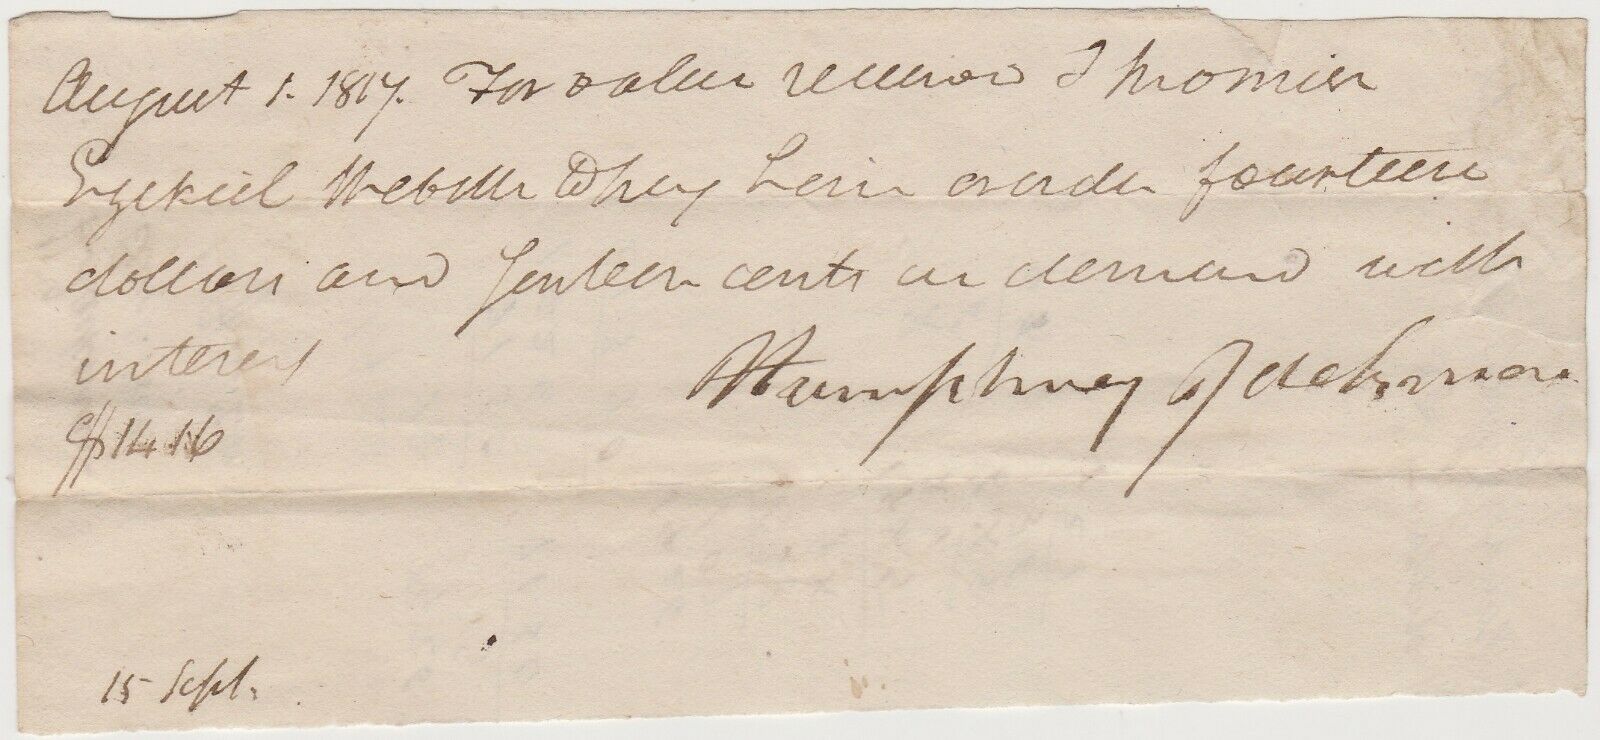 August 1. 1817. For value received I promise
Ezekiel Webster to pay him or order fourteen
dollars and sixteen cents on demand with
interest
Humphrey Jackman
$14.16
15 Sept.